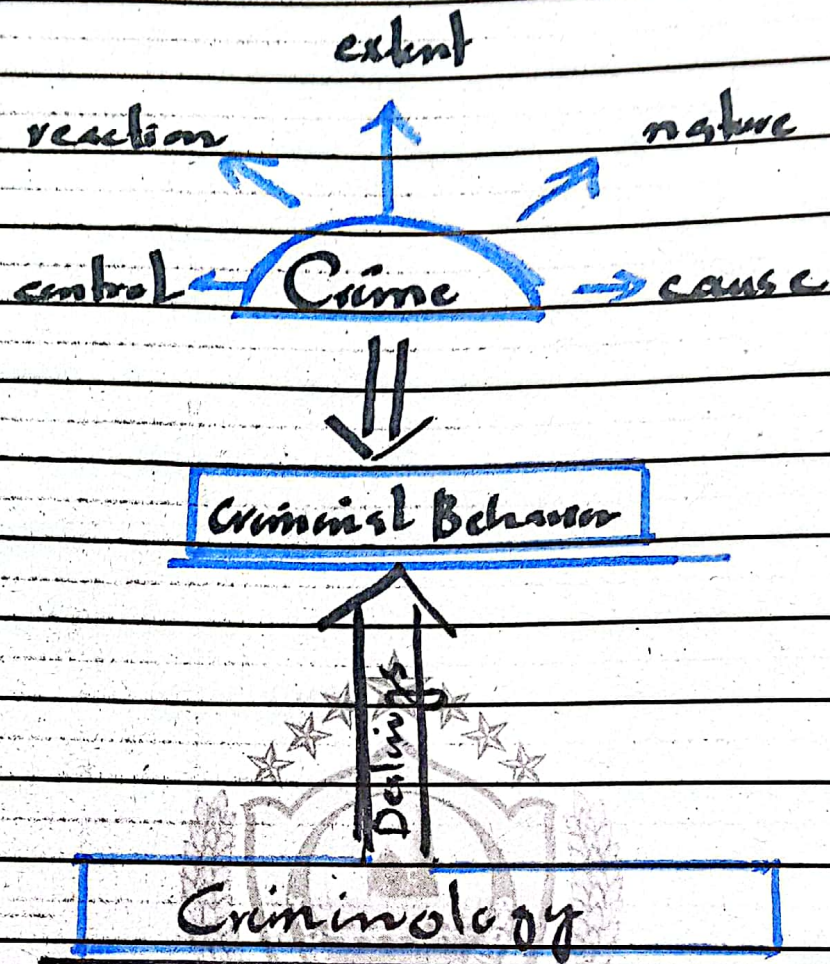 extent
reaction
nature
control
Crime
cause
Criminal Behavior
Dealings
Criminology